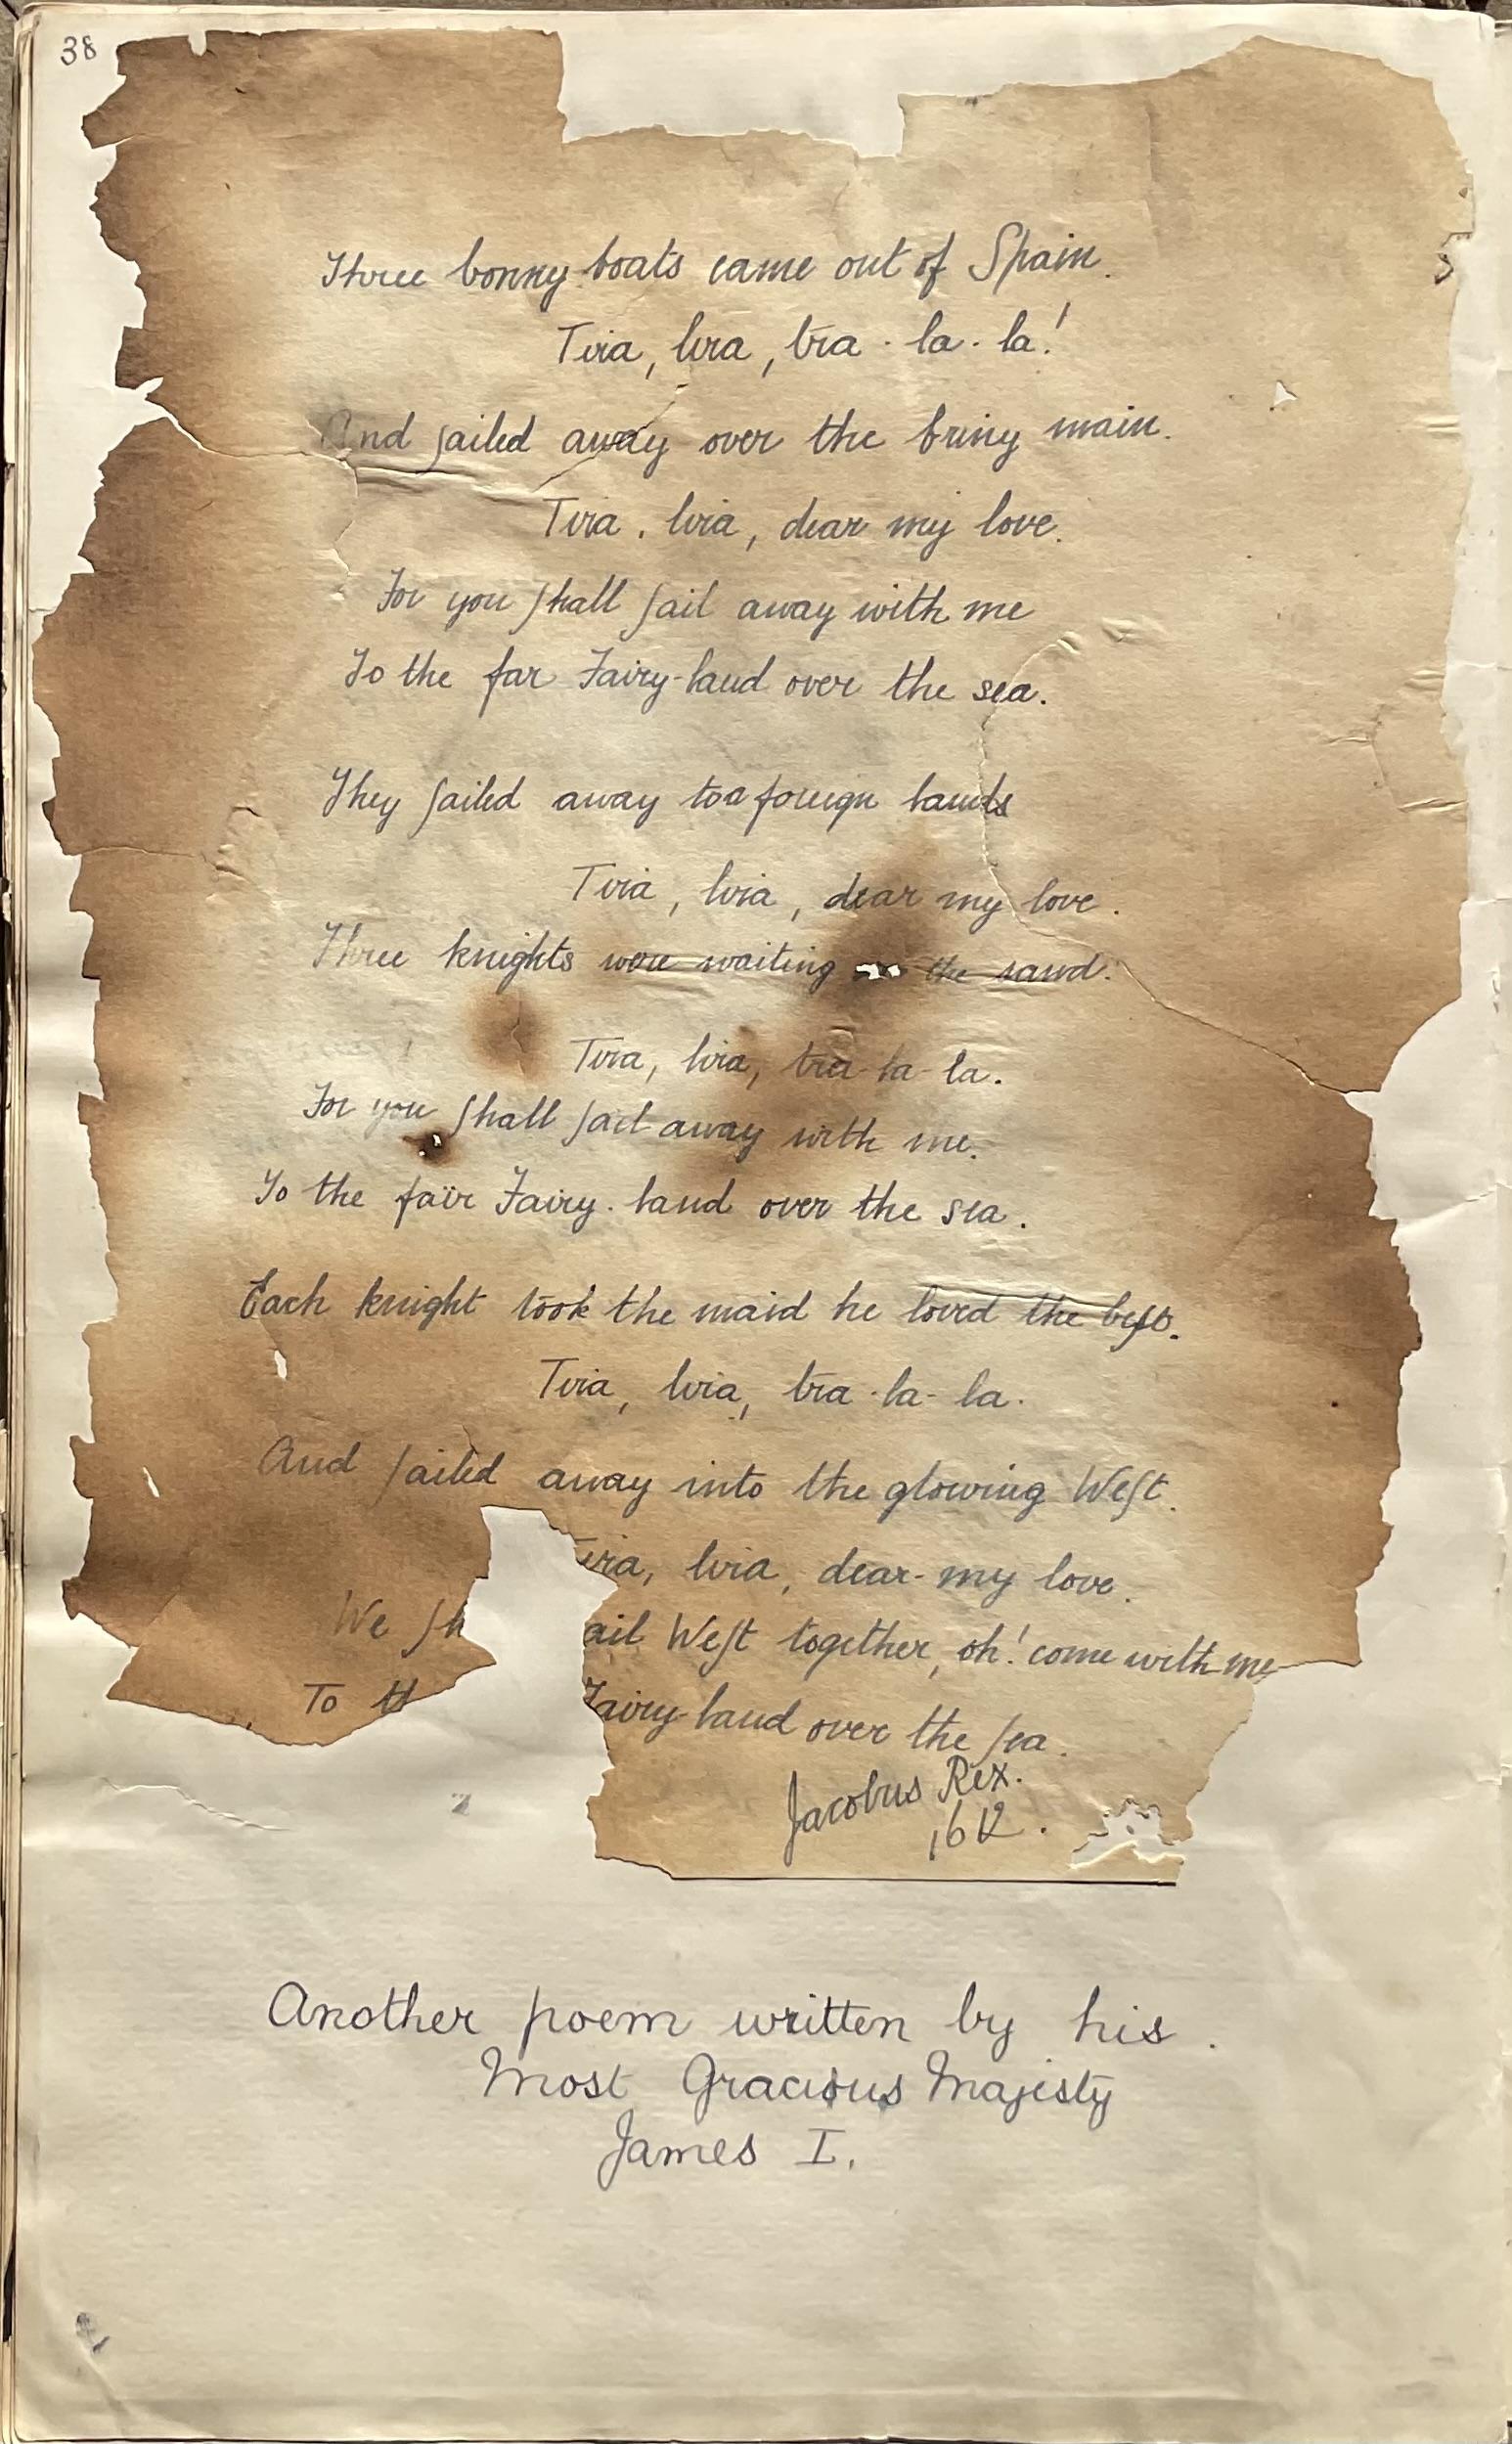 38
Three bonny boats came out of Spain.
Tira, lira, tra-la-la!
And ſailed away over the briny main.
Tira, lira, dear my love.
For you ſhall ſail away with me
To the far Fairy-land over the sea.
They ſailed away to a foreign lands
Tira, lira, dear my love.
Three knights were waiting the sand.
Tira, lira, tra-la-la.
For you ſhall ſail away with me.
To the fair Fairy-land over the sea.
Each knight took the maid he loved the beſt.
Tira, lira, tra-la-la.
And ſailed away into the glowing Weſt.
ira, lira, dear my love.
We ſh ail Weſt together, oh! come with me
To th Fairy-land over the ſea.
Jacobus Rex.
1612.
Another poem written by his.
Most Gracious Majesty
James I.